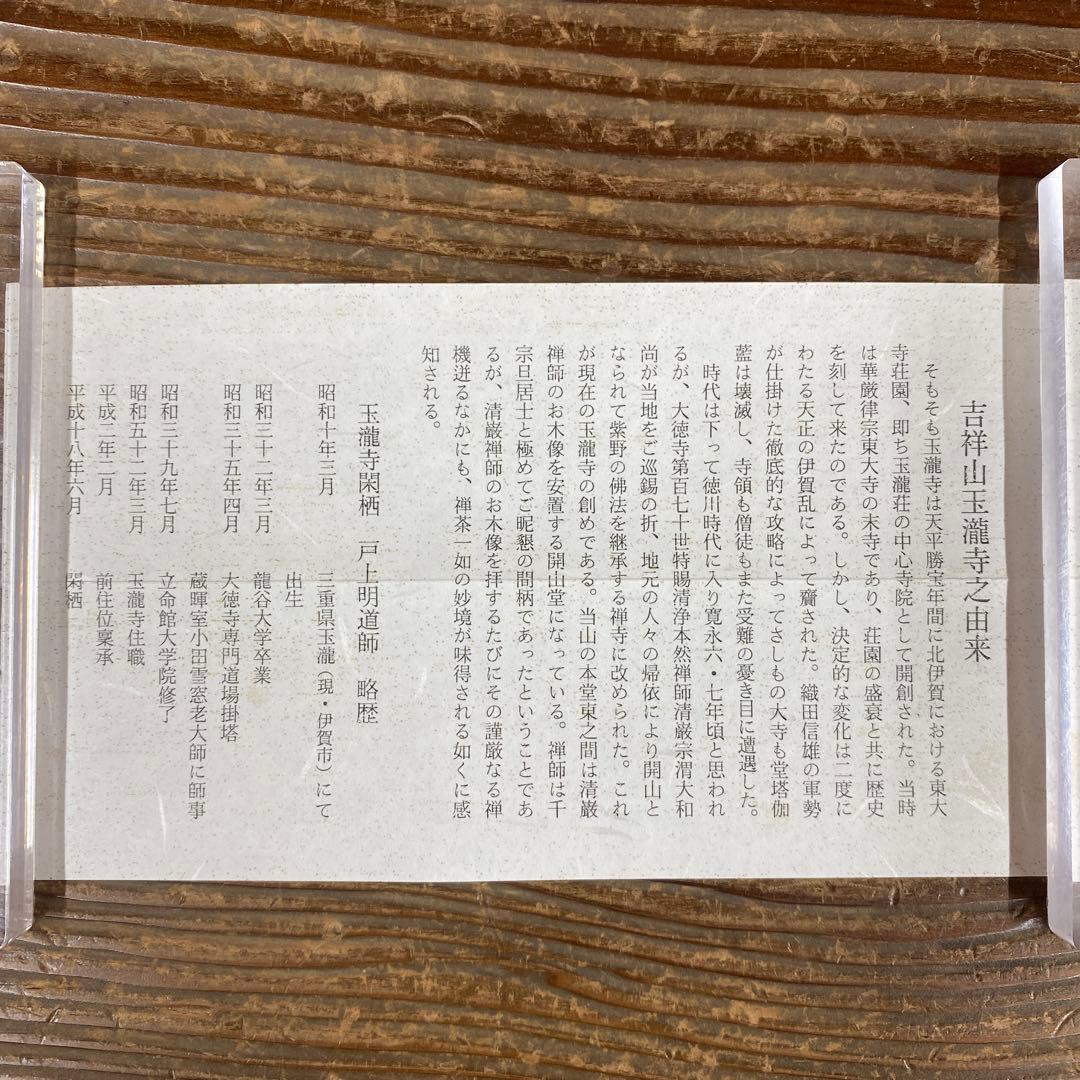 吉祥山玉瀧寺之由来
そもそも玉瀧寺は天平勝宝年間に北伊賀における東大
寺荘園、即ち玉瀧荘の中心寺院として開創された。当時
は華厳律宗東大寺の末寺であり、荘園の盛衰と共に歴史
を刻して来たのである。しかし、決定的な変化は二度に
わたる天正の伊賀乱によって齎された。織田信雄の軍勢
が仕掛けた徹底的な攻略によってさしもの大寺も堂塔伽
藍は壊滅し、寺領も僧徒もまた受難の憂き目に遭遇した。
時代は下って徳川時代に入り寛永六・七年頃と思われ
るが、大徳寺第百七十世特賜清浄本然禅師清巌宗渭大和
尚が当地をご巡錫の折、地元の人々の帰依により開山と
なられて紫野の佛法を継承する禅寺に改められた。これ
が現在の玉瀧寺の創めである。当山の本堂東之間は清巌
禅師のお木像を安置する開山堂になっている。禅師は千
宗旦居士と極めてご昵懇の間柄であったということであ
るが、清巌禅師のお木像を拝するたびにその謹厳なる禅
機迸るなかにも、禅茶一如の妙境が味得される如くに感
知される。
玉瀧寺閑栖 戸上明道師 略歴
昭和十年三月 三重県玉瀧（現・伊賀市）にて
出生
昭和三十二年三月 龍谷大学卒業
昭和三十五年四月 大徳寺専門道場掛塔
蔵暉室小田雪窓老大師に師事
昭和三十九年七月 立命館大学院修了
昭和五十二年三月 玉瀧寺住職
平成二年二月 前住位稟承
平成十八年六月 閑栖